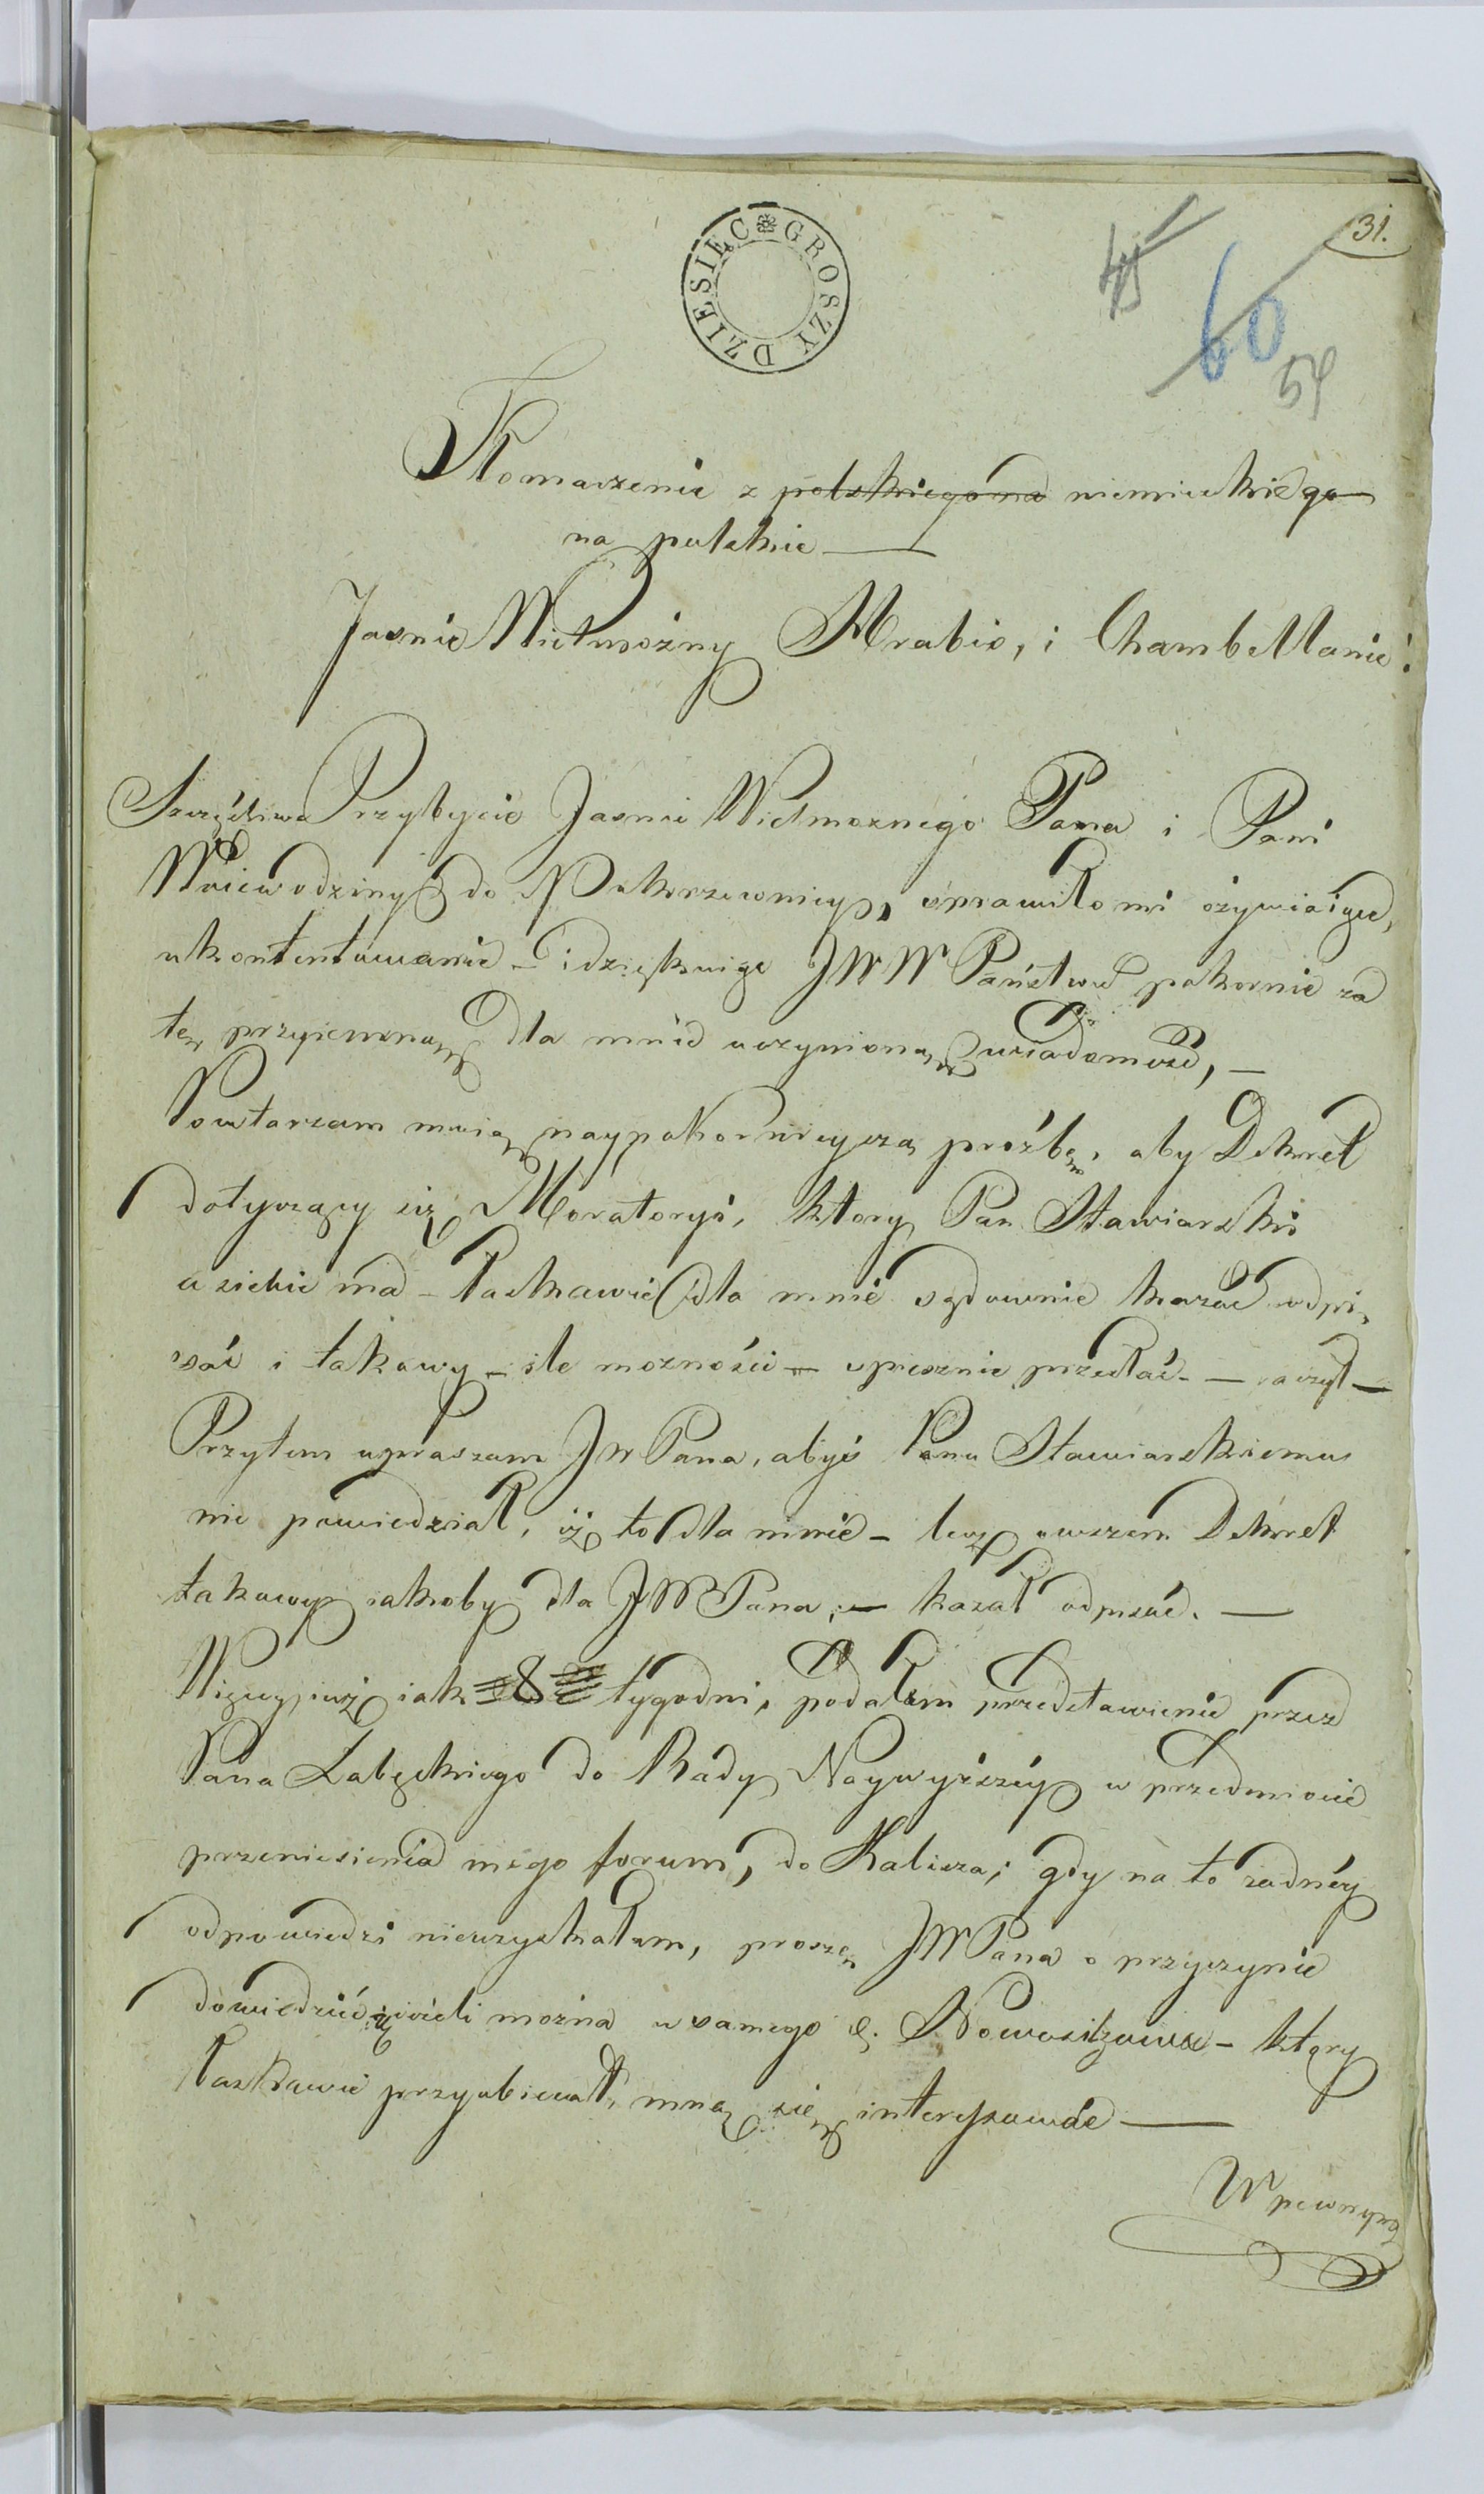 31.
45
60
54
DZIESIĘC GROSZY
Tłomaczenie z polskiego na niemieckiego
na polskie —
Jaśnie Wielmożny Hrabio, i Chambellanie!
Szczęśliwe Przybycie Jasnie Wielmoznego Pana i Pani
Woiewodziny do Pokrzewnicy, sprawiło mi ożywiaiące,
ukontentowanie – i dziękuię JWW Państwu pokornie za
tę przyiemną dla mnie uczynioną wiadomość, —
Powtarzam moią naypokornieyszą prożbę, aby Dekret
dotyczący się Moratoryi, ktory Pan Stawiarski
u siebie ma – łaskawie dla mnie sądownie kazać odpi-
sać i takowy – ile mozności – spiesznie przesłać – raczył —
Przytem upraszam JW Pana, abyś Panu Stawiarskiemu
nie powiedział, iż to dla mnie – lecz owszem Dekret
takowy iakoby dla JW Pana, — kazał odpisać. —
Więcey iuż iak 8 tygodni, podałem przedstawienie przez
Pana Łabęckiego do Rady Naywyższéy w przedmiocie
przeniesienia mego forum, do Kalisza; gdy na to żadnéy
odpowiedzi nieuzyskałem, proszę JW Pana o przyczynie
dowiedzieć się ieżeli można u samego S. Nowosilzowa – ktory
łaskawie przyobiecał, mną się interesować —
W pewnym